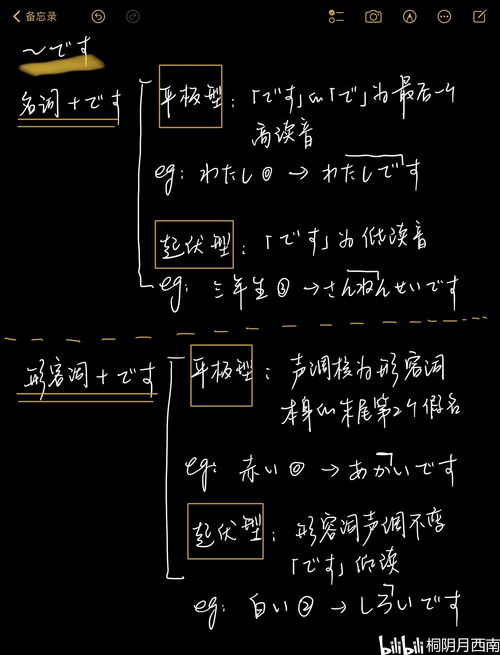 备忘录
～です
名词+です
平板型：「です」的「で」为最后一个
高读音
eg：わたし⓪→わたしです
起伏型：「です」为低读音
eg：三年生③→さんねんせいです
形容词+です
平板型：声调核为形容词
本身的末尾第2个假名
eg：赤い⓪→あかいです
起伏型：形容词声调不变
「です」低读
eg：白い②→しろいです
bilibili 桐阴月西南